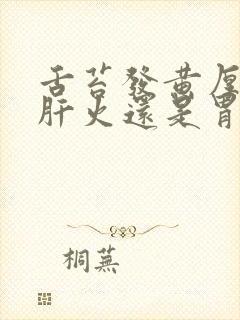 舌苔發黃厚
肝火還是胃
桐蕪